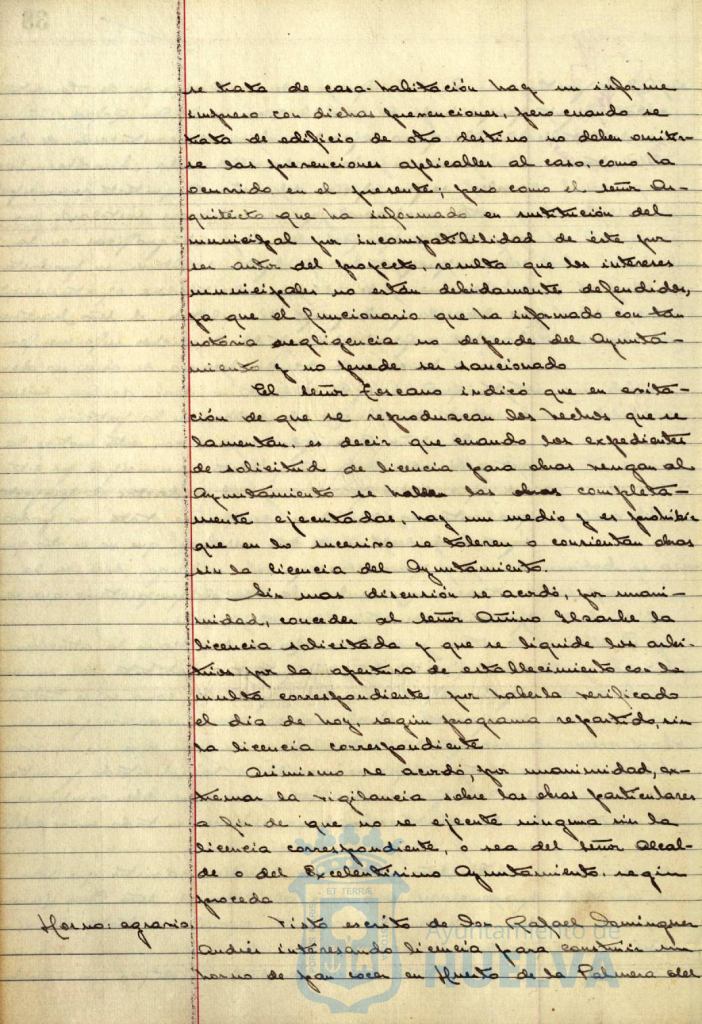 38
se trata de casa-habitación hay un informe
impreso con dichas prevenciones, pero cuando se
trata de edificio de otro destino no deben omitir-
se las prevenciones aplicables al caso, como ha
ocurrido en el presente; pero como el señor Ar-
quitecto que ha informado en sustitución del
municipal por incompatibilidad de éste por
ser autor del proyecto, resulta que los intereses
municipales no están debidamente defendidos,
ya que el funcionario que ha informado con tan
notoria negligencia no depende del Ayunta-
miento y no puede ser sancionado
El señor Toscano indicó que en evita-
ción de que se reproduzcan los hechos que se
lamentan, es decir que cuando los expedientes
de solicitud de licencia para obras vengan al
Ayuntamiento se hallen las obras completa-
mente ejecutadas, hay un medio y es prohibir
que en lo sucesivo se toleren o consientan obras
sin la licencia del Ayuntamiento.
Sin mas discusión se acordó, por unani-
midad, conceder al señor la
licencia solicitada y que se liquide los arbi-
trios por la apertura de establecimiento con la
multa correspondiente por haberla verificado
el día de hoy, según programa repartido, sin
la licencia correspondiente
Asimismo se acordó, por unanimidad, ex-
tremar la vigilancia sobre las obras particulares
a fin de que no se ejecute ninguna sin la
licencia correspondiente, o sea del señor Alcal-
de o del Excelentísimo Ayuntamiento, según
proceda
Horno: agrario. Visto escrito de don Rafael Dominguez
Andrés interesando licencia para construir un
horno de pan cocer en Huerto de la Palmera del
ET TERRÆ
Ayuntamiento de
HUELVA